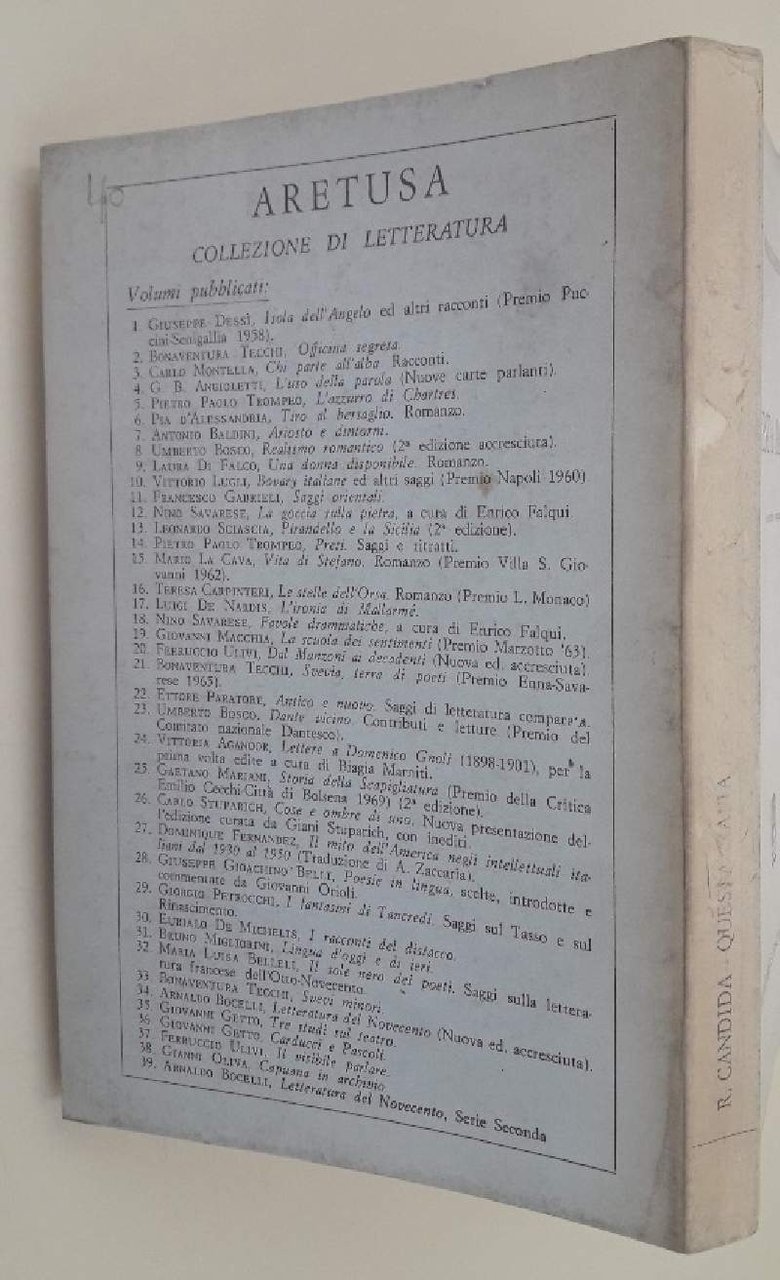 40
ARETUSA
COLLEZIONE DI LETTERATURA
Volumi pubblicati:
1. GIUSEPPE DESSÌ, Isola dell'Angelo ed altri racconti (Premio Puc-
cini-Senigallia 1958).
2. BONAVENTURA TECCHI, Officina segreta.
3. CARLO MONTELLA, Chi parte all'alba. Racconti.
4. G. B. ANGIOLETTI, L'uso della parola (Nuove carte parlanti).
5. PIETRO PAOLO TROMPEO, L'azzurro di Chartres.
6. PIA D'ALESSANDRIA, Tiro al bersaglio. Romanzo.
7. ANTONIO BALDINI, Ariosto e dintorni.
8. UMBERTO BOSCO, Realismo romantico (2ª edizione accresciuta).
9. LAURA DI FALCO, Una donna disponibile. Romanzo.
10. VITTORIO LUGLI, Bovary italiane ed altri saggi (Premio Napoli 1960)
11. FRANCESCO GABRIELI, Saggi orientali.
12. NINO SAVARESE, La goccia sulla pietra, a cura di Enrico Falqui
13. LEONARDO SCIASCIA, Pirandello e la Sicilia (2ª edizione).
14. PIETRO PAOLO TROMPEO, Preti. Saggi e ritratti.
15. MARIO LA CAVA, Vita di Stefano. Romanzo (Premio Villa S. Gio-
vanni 1962).
16. TERESA CARPINTERI, Le stelle dell'Orsa. Romanzo (Premio L. Monaco)
17. LUIGI DE NARDIS, L'ironia di Mallarmé.
18. NINO SAVARESE, Favole drammatiche, a cura di Enrico Falqui.
19. GIOVANNI MACCHIA, La scuola dei sentimenti (Premio Marzotto '63).
20. FERRUCCIO ULIVI, Dal Manzoni ai decadenti (Nuova ed. accresciuta)
21. BONAVENTURA TECCHI, Svevia, terra di poeti (Premio Enna-Sava-
rese 1965).
22. ETTORE PARATORE, Antico e nuovo. Saggi di letteratura comparata.
23. UMBERTO BOSCO, Dante vicino. Contributi e letture (Premio del
Comitato nazionale Dantesco).
24. VITTORIA AGANOOR, Lettere a Domenico Gnoli (1898-1901), per la
prima volta edite a cura di Biagia Marniti.
25. GAETANO MARIANI, Storia della Scapigliatura (Premio della Critica
Emilio Cecchi-Città di Bolsena 1969) (2ª edizione).
26. CARLO STUPARICH, Cose e ombre di uno. Nuova presentazione del-
l'edizione curata da Giani Stuparich, con inediti.
27. DOMINIQUE FERNANDEZ, Il mito dell'America negli intellettuali ita-
liani dal 1930 al 1950 (Traduzione di A. Zaccaria).
28. GIUSEPPE GIOACHINO BELLI, Poesie in lingua, scelte, introdotte e
commentate da Giovanni Orioli.
29. GIORGIO PETROCCHI, I fantasmi di Tancredi. Saggi sul Tasso e sul
Rinascimento.
30. EURIALO DE MICHELIS, I racconti del distacco.
31. BRUNO MIGLIORINI, Lingua d'oggi e di ieri.
32. MARIA LUISA BELLELI, Il sole nero dei poeti. Saggi sulla lettera-
tura francese dell'Otto-Novecento.
33. BONAVENTURA TECCHI, Svevi minori.
34. ARNALDO BOCELLI, Letteratura del Novecento (Nuova ed. accresciuta).
35. GIOVANNI GETTO, Tre studi sul teatro.
36. GIOVANNI GETTO, Carducci e Pascoli.
37. FERRUCCIO ULIVI, Il visibile parlare.
38. GIANNI OLIVA, Capuana in archivio.
39. ARNALDO BOCELLI, Letteratura del Novecento, Serie Seconda
R. CANDIDA - QUESTA MAFIA